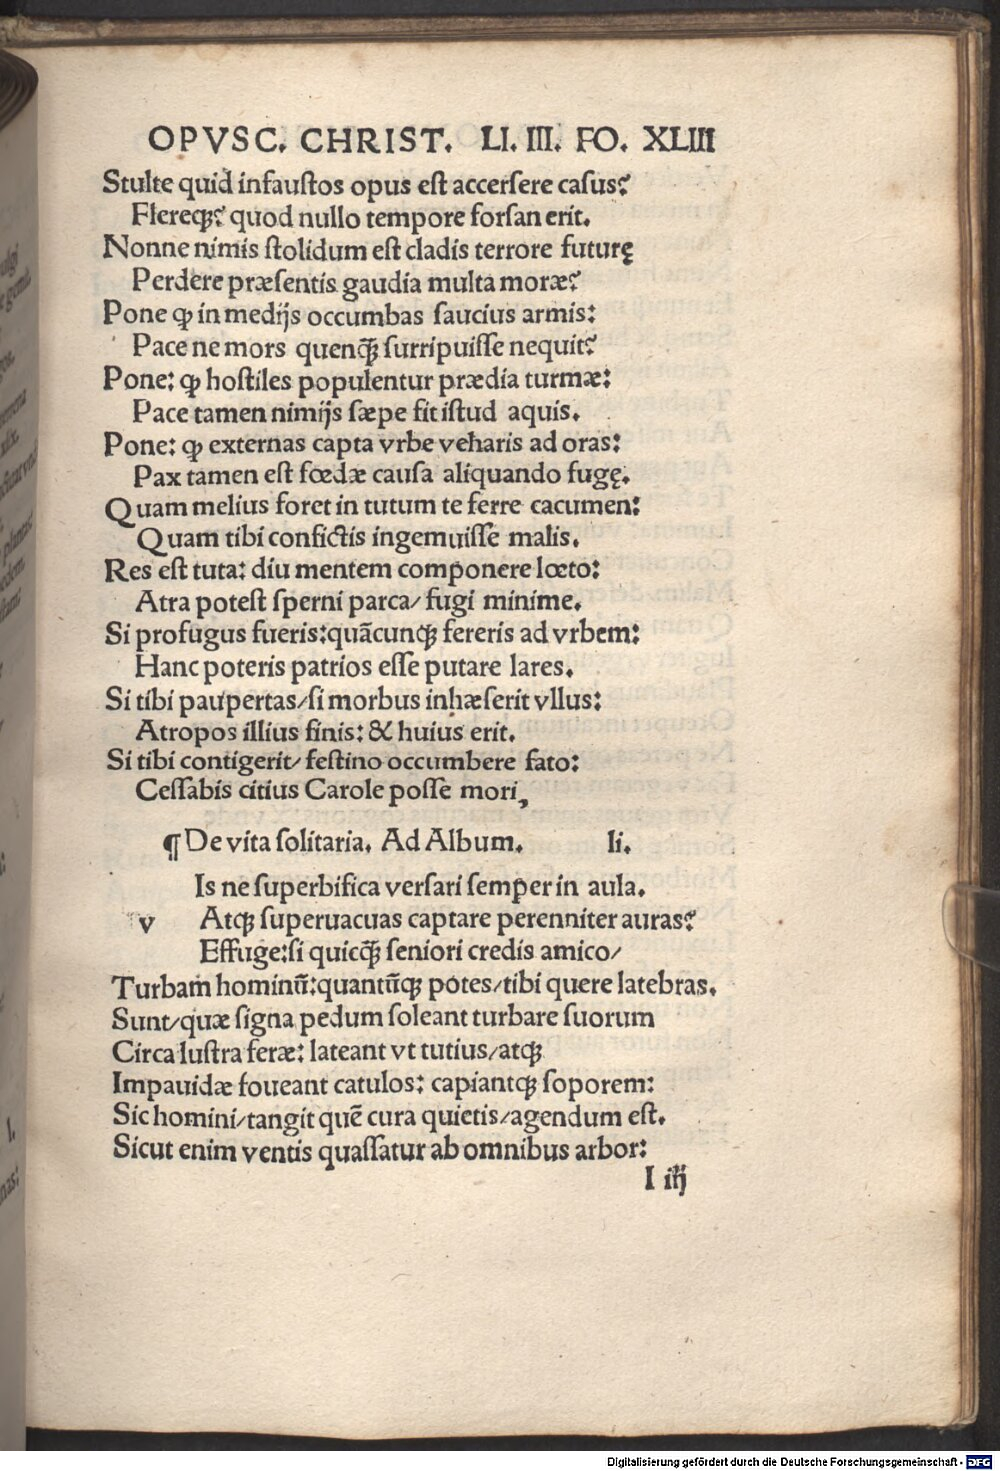 OPVSC. CHRIST. LI. III. FO. XLIII
Stulte quid infaustos opus est accersere casus?
Flereqꝫ? quod nullo tempore forsan erit.
Nonne nimis stolidum est cladis terrore futurę
Perdere præsentis gaudia multa moræ?
Pone ꝙ in medijs occumbas saucius armis:
Pace ne mors quenqꝫ surripuisse nequit?
Pone: ꝙ hostiles populentur prædia turmæ:
Pace tamen nimijs sæpe fit istud aquis.
Pone: ꝙ externas capta vrbe veharis ad oras:
Pax tamen est fœdæ causa aliquando fugę.
Quam melius foret in tutum te ferre cacumen:
Quam tibi confictis ingemuisse malis.
Res est tuta: diu mentem componere lœto:
Atra potest sperni parca/ fugi minime.
Si profugus fueris:quãcunqꝫ fereris ad vrbem:
Hanc poteris patrios esse putare lares.
Si tibi paupertas/si morbus inhæserit vllus:
Atropos illius finis: & huius erit.
Si tibi contigerit/ festino occumbere fato:
Cessabis citius Carole posse mori,
¶ De vita solitaria. Ad Album. li.
Is ne superbifica versari semper in aula.
v Atqꝫ superuacuas captare perenniter auras?
Effuge:si quicqꝫ̃ seniori credis amico/
Turbam hominũ:quantũqꝫ potes/tibi quere latebras.
Sunt/quæ signa pedum soleant turbare suorum
Circa lustra feræ: lateant vt tutius/atqꝫ
Impauidæ foueant catulos: capiantqꝫ soporem:
Sic homini/tangit quẽ cura quietis/agendum est.
Sicut enim ventis quassatur ab omnibus arbor:
I iij
Digitalisierung gefördert durch die Deutsche Forschungsgemeinschaft - DFG